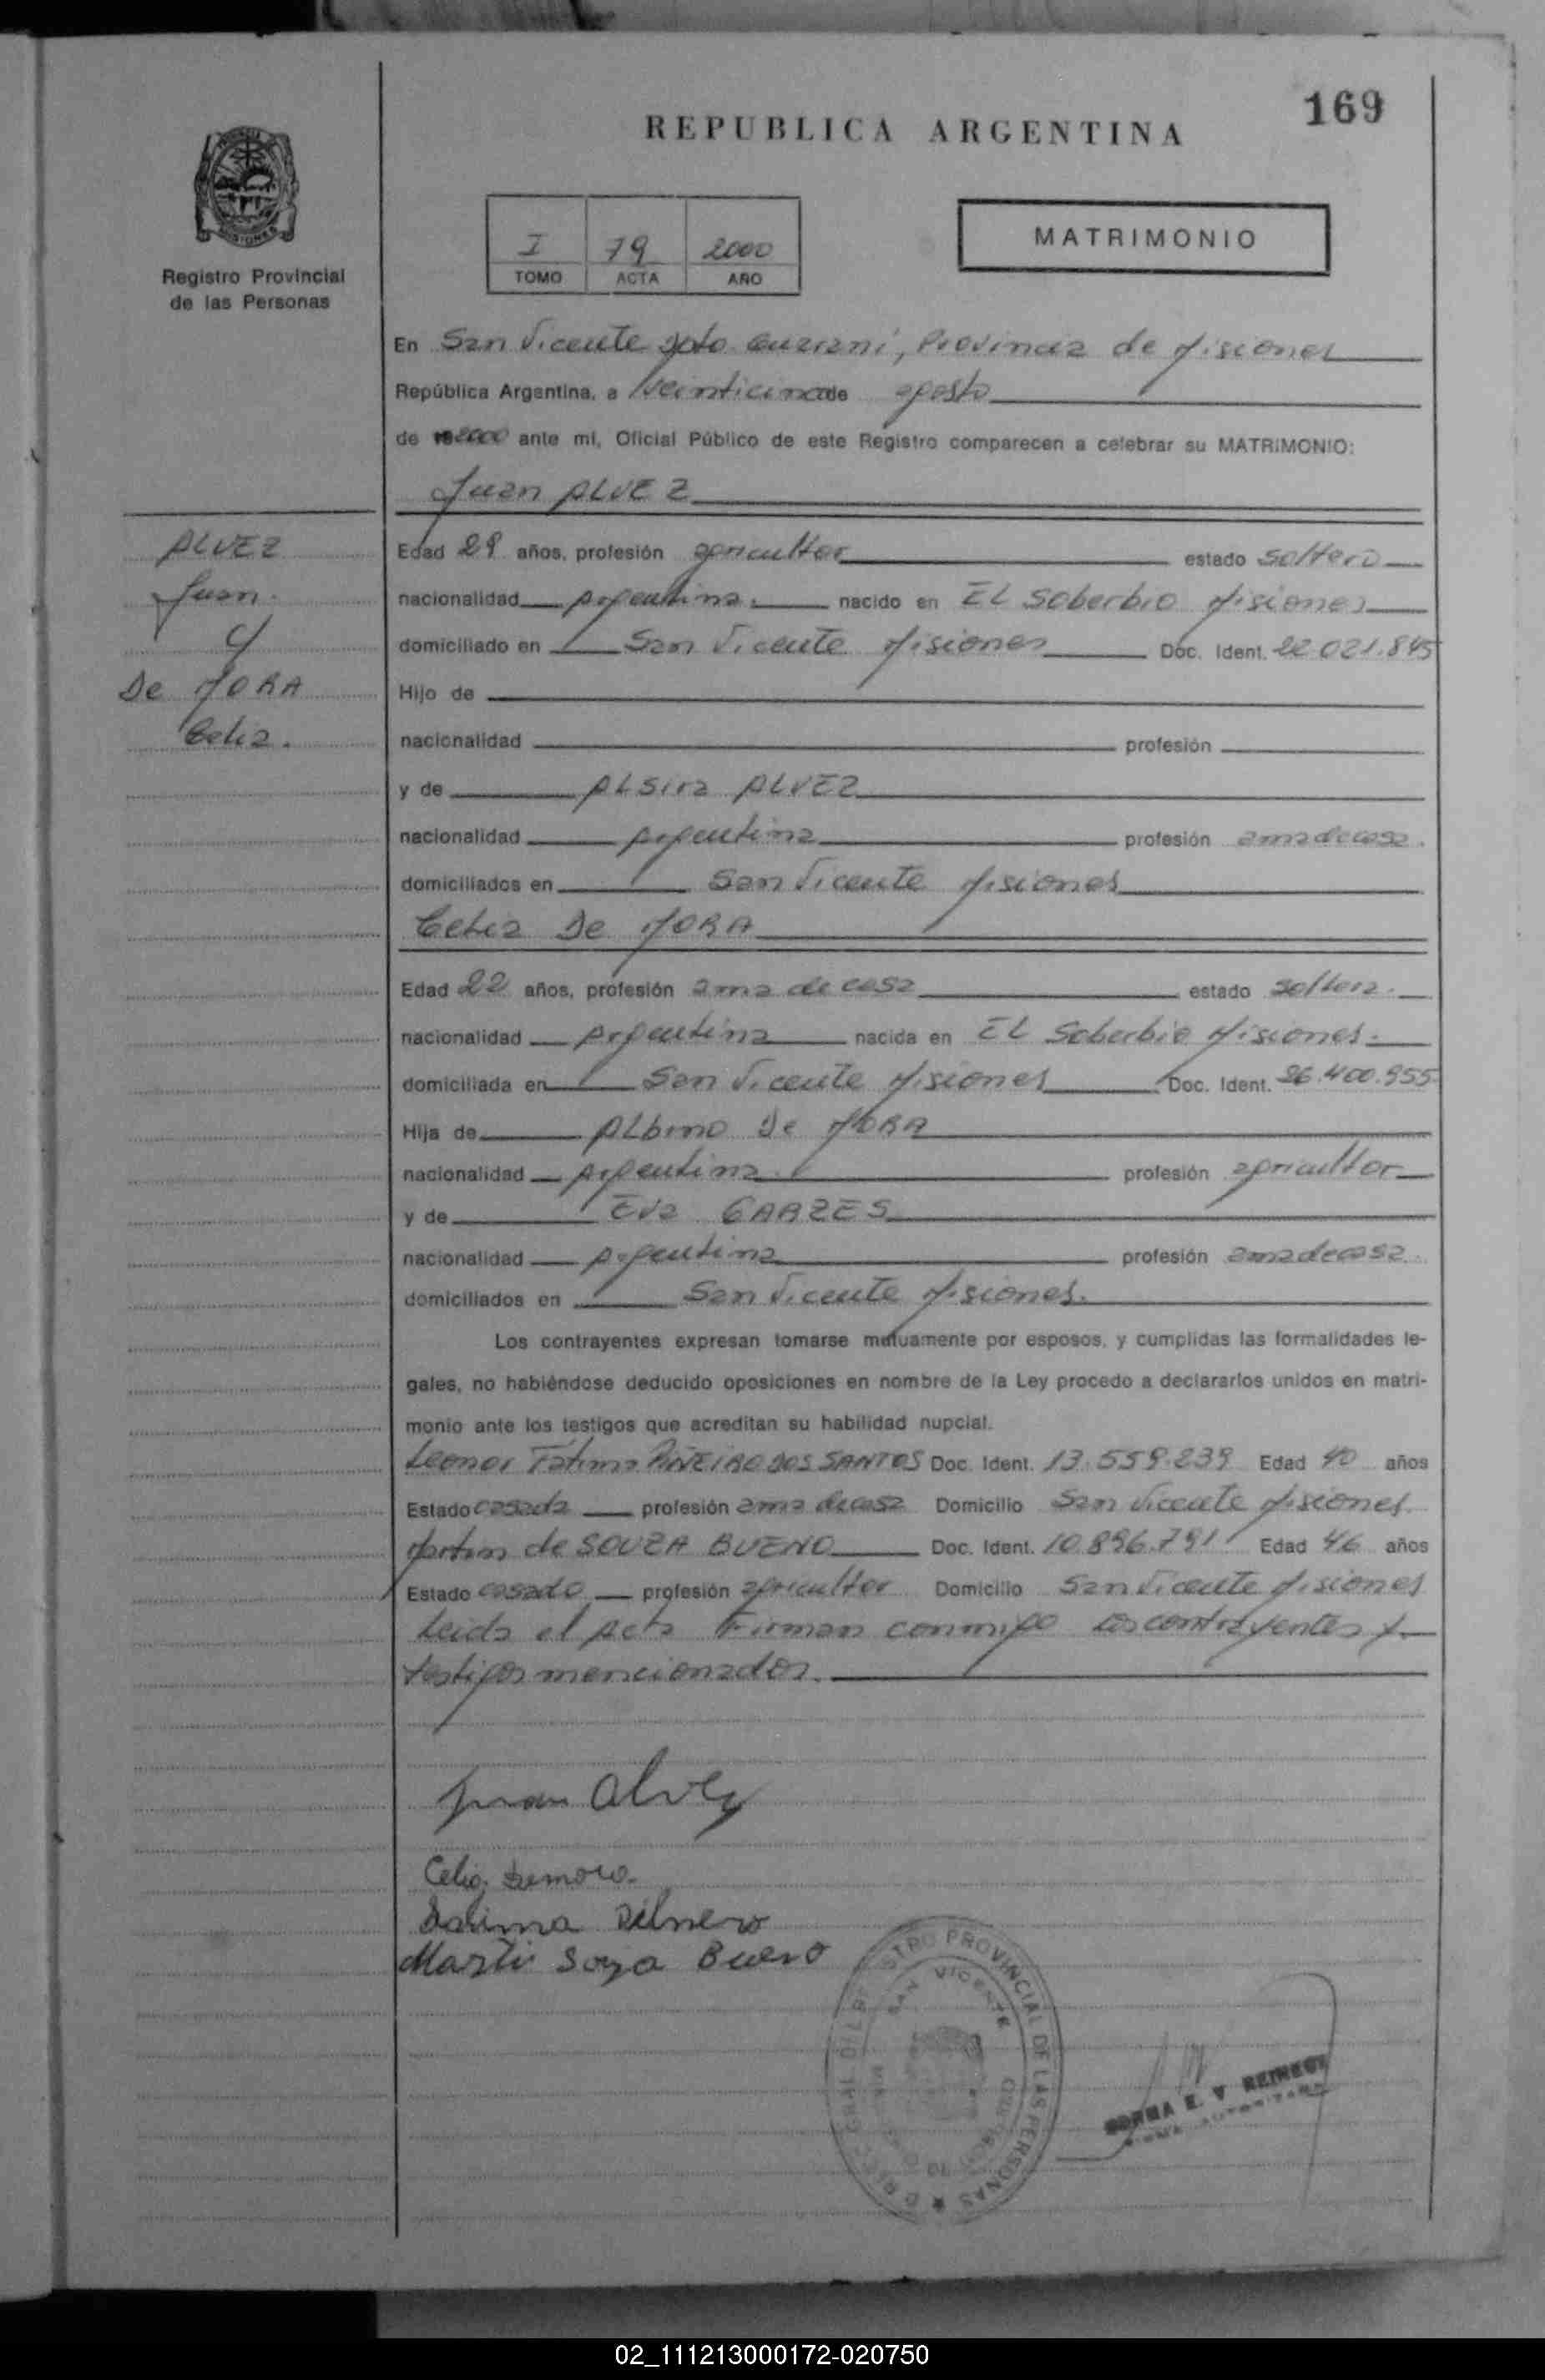 169
REPUBLICA ARGENTINA
I 79 2000
TOMO ACTA AÑO
MATRIMONIO
Registro Provincial
de las Personas
En San Vicente Dpto. Guaraní, Provincia de Misiones
República Argentina, a veinticinco de agosto
de 2000 ante mí, Oficial Público de este Registro comparecen a celebrar su MATRIMONIO:
Juan ALVEZ
ALVEZ
Juan.
c/
De MORA
Celia.
Edad 29 años, profesión agricultor estado soltero
nacionalidad Argentina. nacido en EL Soberbio Misiones
domiciliado en San Vicente Misiones Doc. Ident. 22.021.845
Hijo de
nacionalidad profesión
y de ALSira ALVEZ
nacionalidad Argentina profesión ama de casa.
domiciliados en San Vicente Misiones
Celia De MORA
Edad 22 años, profesión ama de casa estado soltera.
nacionalidad Argentina nacida en EL Soberbio Misiones.
domiciliada en San Vicente Misiones Doc. Ident. 26.400.955
Hija de ALbino De MORA
nacionalidad Argentina. profesión agricultor
y de Eva GARZES
nacionalidad Argentina profesión ama de casa.
domiciliados en San Vicente Misiones.
Los contrayentes expresan tomarse mutuamente por esposos, y cumplidas las formalidades le-
gales, no habiéndose deducido oposiciones en nombre de la Ley procedo a declararlos unidos en matri-
monio ante los testigos que acreditan su habilidad nupcial.
Leonor Fatima PIÑEIRO DOS SANTOS Doc. Ident. 13.559.239 Edad 40 años
Estado casada profesión ama de casa Domicilio San Vicente Misiones.
Martin de SOUZA BUENO Doc. Ident. 10.896.791 Edad 46 años
Estado casado profesión agricultor Domicilio San Vicente Misiones
Leida el Acta Firman conmigo los contrayentes y
testigos mencionados.
Juan Alvez
Celia Demora.
Marti Soza Bueno
PROVINCIAL DE LAS PERSONAS
SAN VICENTE
NORMA E. V
02_111213000172-020750